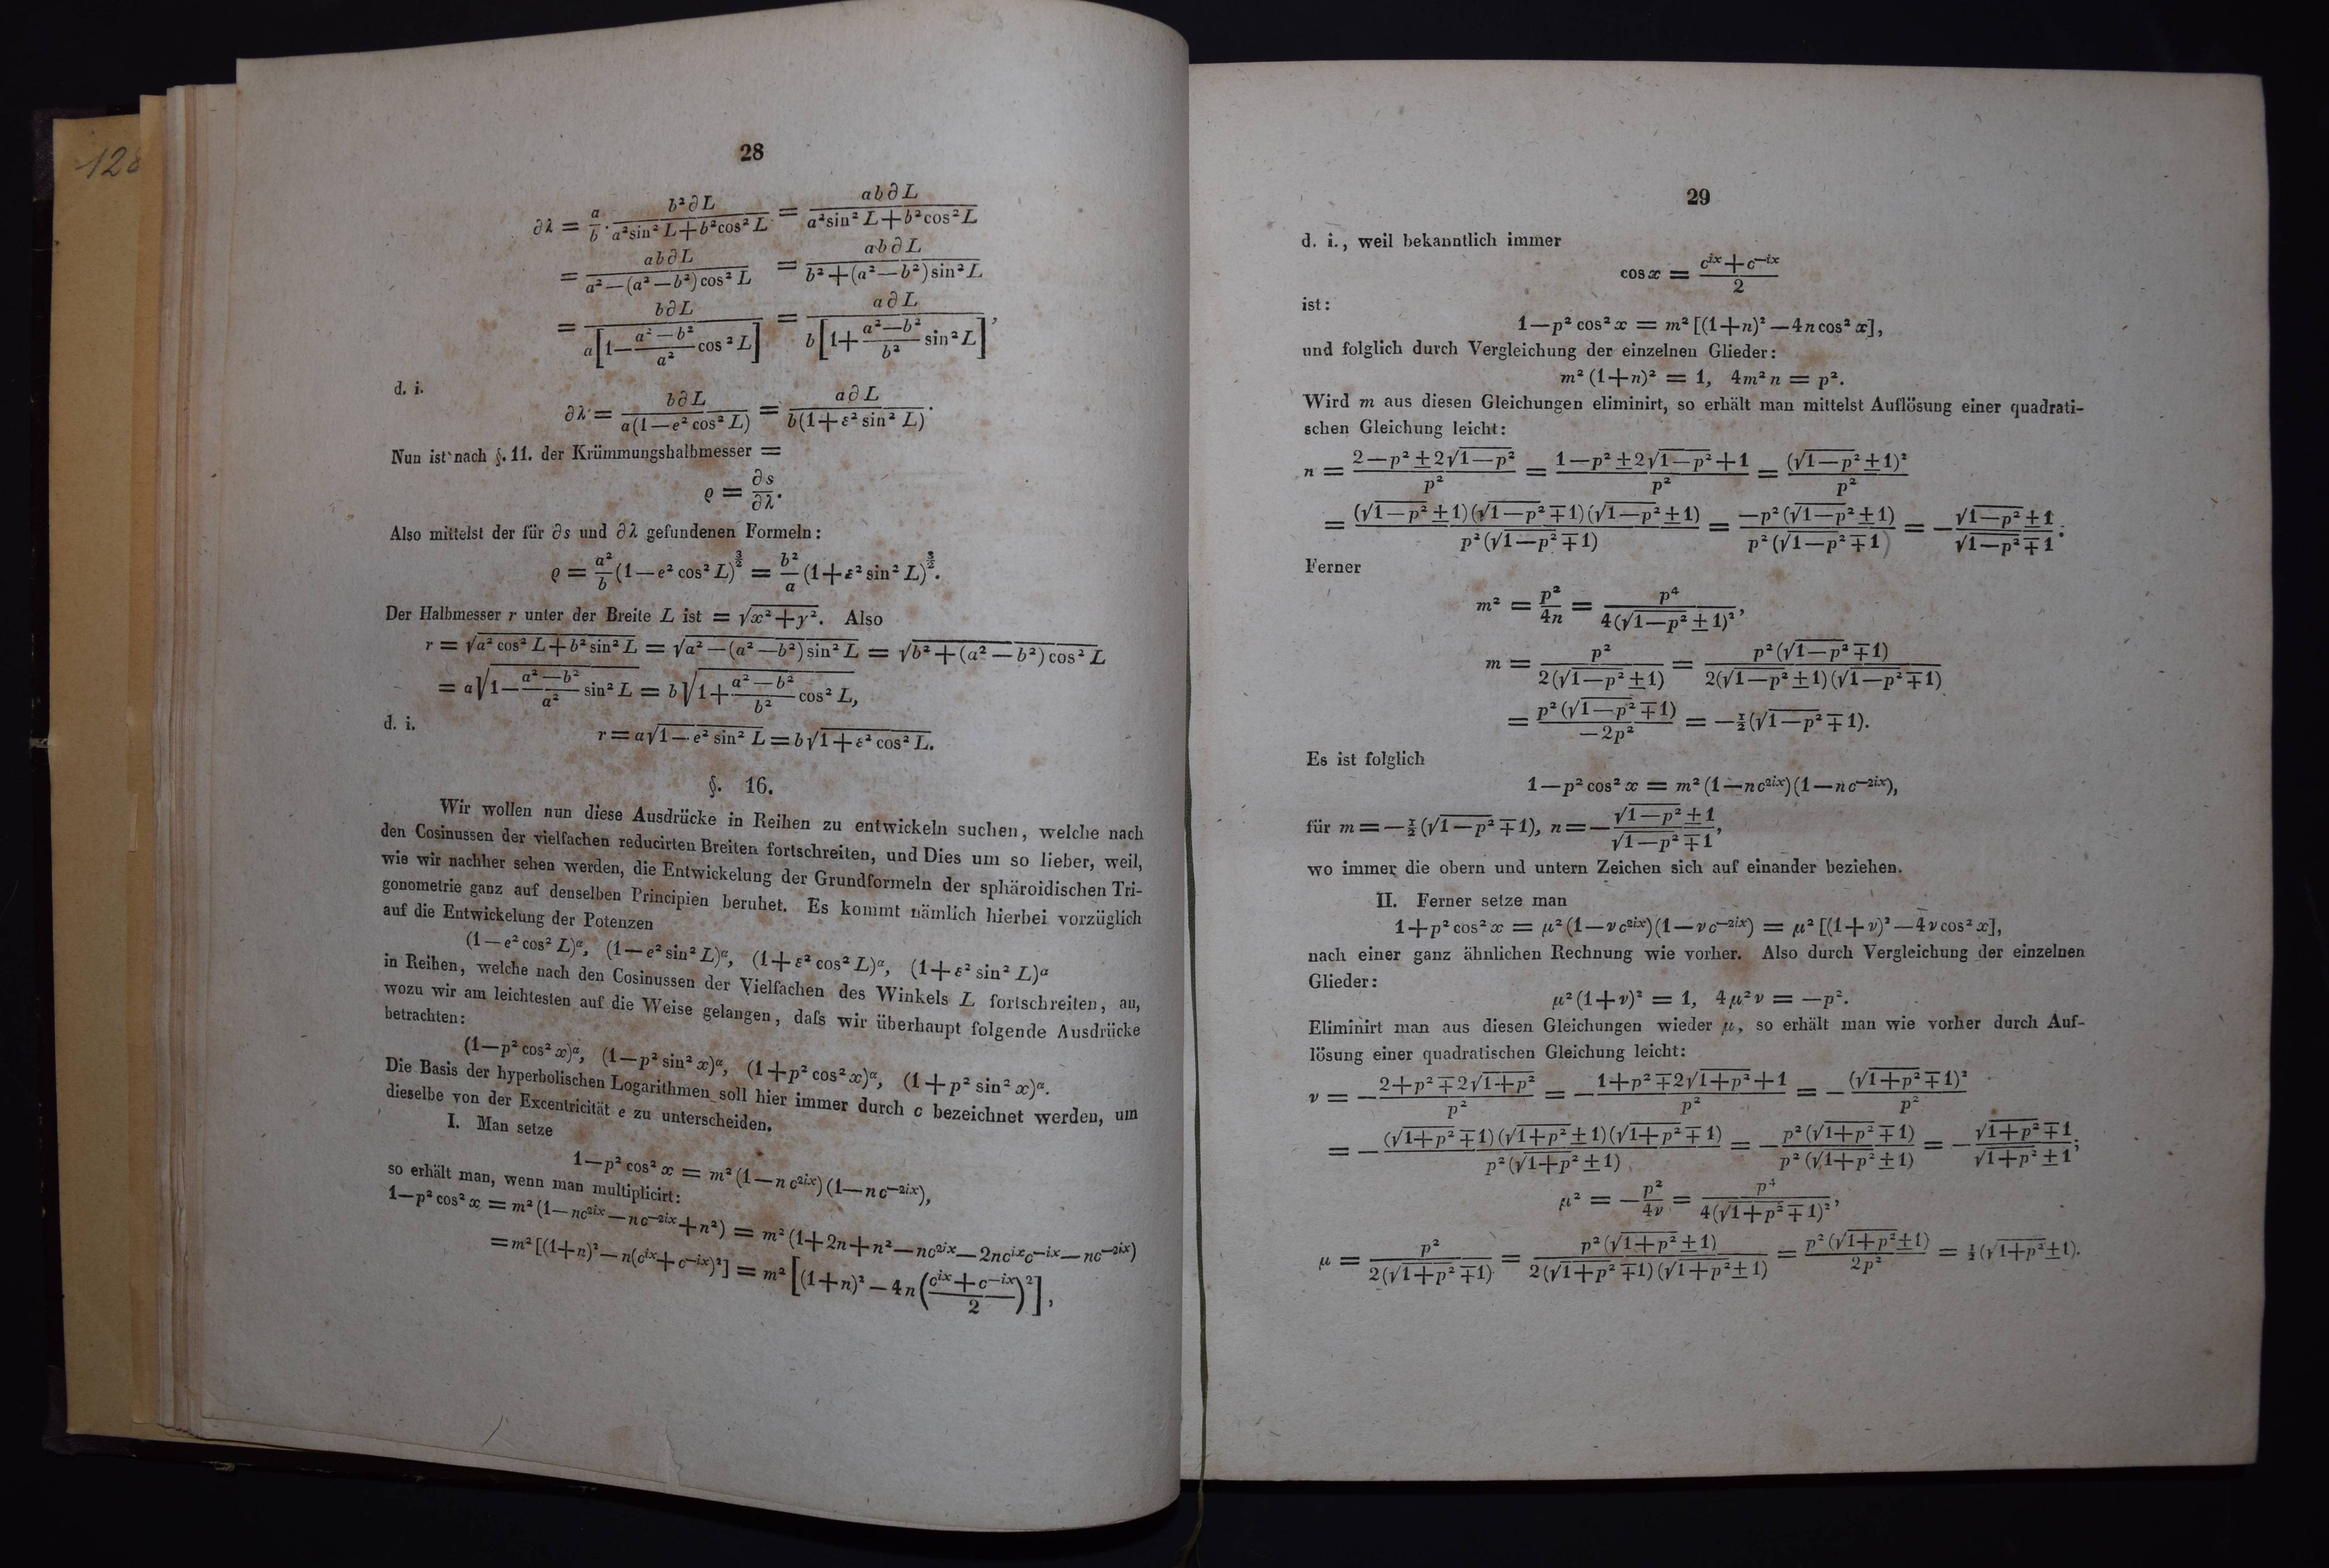 128
28
∂λ = a/b · b²∂L/(a²sin²L+b²cos²L) = ab∂L/(a²sin²L+b²cos²L)
= ab∂L/(a²—(a²—b²)cos²L) = ab∂L/(b²+(a²—b²)sin²L)
= b∂L/(a[1—(a²—b²)/a² cos²L]) = a∂L/(b[1+(a²—b²)/b² sin²L]),
d. i.
∂λ = b∂L/(a(1—e²cos²L)) = a∂L/(b(1+ε²sin²L)).
Nun ist nach §. 11. der Krümmungshalbmesser =
ϱ = ∂s/∂λ.
Also mittelst der für ∂s und ∂λ gefundenen Formeln:
ϱ = a²/b (1—e²cos²L)^(3/2) = b²/a (1+ε²sin²L)^(3/2).
Der Halbmesser r unter der Breite L ist = √(x²+y²). Also
r = √(a²cos²L+b²sin²L) = √(a²—(a²—b²)sin²L) = √(b²+(a²—b²)cos²L)
= a√(1—(a²—b²)/a² sin²L) = b√(1+(a²—b²)/b² cos²L),
d. i.
r = a√(1—e²sin²L) = b√(1+ε²cos²L).
§. 16.
Wir wollen nun diese Ausdrücke in Reihen zu entwickeln suchen, welche nach
den Cosinussen der vielfachen reducirten Breiten fortschreiten, und Dies um so lieber, weil,
wie wir nachher sehen werden, die Entwickelung der Grundformeln der sphäroidischen Tri-
gonometrie ganz auf denselben Principien beruhet. Es kommt nämlich hierbei vorzüglich
auf die Entwickelung der Potenzen
(1—e²cos²L)^α, (1—e²sin²L)^α, (1+ε²cos²L)^α, (1+ε²sin²L)^α
in Reihen, welche nach den Cosinussen der Vielfachen des Winkels L fortschreiten, an,
wozu wir am leichtesten auf die Weise gelangen, daſs wir überhaupt folgende Ausdrücke
betrachten:
(1—p²cos²x)^α, (1—p²sin²x)^α, (1+p²cos²x)^α, (1+p²sin²x)^α.
Die Basis der hyperbolischen Logarithmen soll hier immer durch c bezeichnet werden, um
dieselbe von der Excentricität e zu unterscheiden.
I. Man setze
1—p²cos²x = m²(1—nc^(2ix))(1—nc^(—2ix)),
so erhält man, wenn man multiplicirt:
1—p²cos²x = m²(1—nc^(2ix)—nc^(—2ix)+n²) = m²(1+2n+n²—nc^(2ix)—2nc^(ix)c^(—ix)—nc^(—2ix))
= m²[(1+n)²—n(c^(ix)+c^(—ix))²] = m²[(1+n)²—4n((c^(ix)+c^(—ix))/2)²],
29
d. i., weil bekanntlich immer
cos x = (c^(ix)+c^(—ix))/2
ist:
1—p²cos²x = m²[(1+n)²—4ncos²x],
und folglich durch Vergleichung der einzelnen Glieder:
m²(1+n)² = 1, 4m²n = p².
Wird m aus diesen Gleichungen eliminirt, so erhält man mittelst Auflösung einer quadrati-
schen Gleichung leicht:
n = (2—p²±2√(1—p²))/p² = (1—p²±2√(1—p²)+1)/p² = (√(1—p²)±1)²/p²
= (√(1—p²)±1)(√(1—p²)∓1)(√(1—p²)±1)/(p²(√(1—p²)∓1)) = —p²(√(1—p²)±1)/(p²(√(1—p²)∓1)) = —(√(1—p²)±1)/(√(1—p²)∓1);
Ferner
m² = p²/4n = p⁴/(4(√(1—p²)±1)²),
m = p²/(2(√(1—p²)±1)) = p²(√(1—p²)∓1)/(2(√(1—p²)±1)(√(1—p²)∓1))
= p²(√(1—p²)∓1)/(—2p²) = —½(√(1—p²)∓1).
Es ist folglich
1—p²cos²x = m²(1—nc^(2ix))(1—nc^(—2ix)),
für m = —½(√(1—p²)∓1), n = —(√(1—p²)±1)/(√(1—p²)∓1),
wo immer die obern und untern Zeichen sich auf einander beziehen.
II. Ferner setze man
1+p²cos²x = μ²(1—νc^(2ix))(1—νc^(—2ix)) = μ²[(1+ν)²—4νcos²x],
nach einer ganz ähnlichen Rechnung wie vorher. Also durch Vergleichung der einzelnen
Glieder:
μ²(1+ν)² = 1, 4μ²ν = —p².
Eliminirt man aus diesen Gleichungen wieder μ, so erhält man wie vorher durch Auf-
lösung einer quadratischen Gleichung leicht:
ν = —(2+p²∓2√(1+p²))/p² = —(1+p²∓2√(1+p²)+1)/p² = —(√(1+p²)∓1)²/p²
= —(√(1+p²)∓1)(√(1+p²)±1)(√(1+p²)∓1)/(p²(√(1+p²)±1)) = —p²(√(1+p²)∓1)/(p²(√(1+p²)±1)) = —(√(1+p²)∓1)/(√(1+p²)±1);
μ² = —p²/4ν = p⁴/(4(√(1+p²)∓1)²),
μ = p²/(2(√(1+p²)∓1)) = p²(√(1+p²)±1)/(2(√(1+p²)∓1)(√(1+p²)±1)) = p²(√(1+p²)±1)/2p² = ½(√(1+p²)±1).